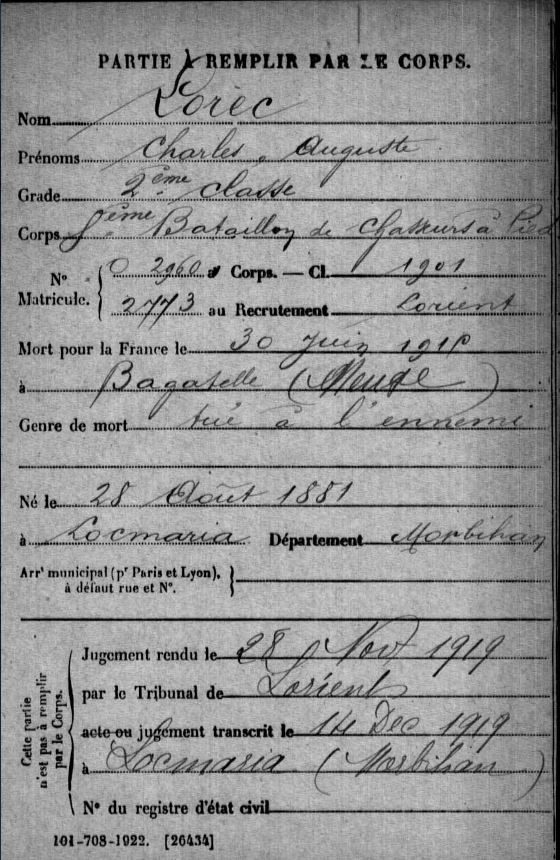 PARTIE À REMPLIR PAR LE CORPS.
Nom Lorec
Prénoms Charles, Auguste
Grade 2ème classe
Corps 8ème Bataillon de Chasseurs à Pied
N° Matricule. { 0 2960 au Corps. — Cl. 1901
2773 au Recrutement Lorient
Mort pour la France le 30 Juin 1915
à Bagatelle (Meuse)
Genre de mort tué à l'ennemi
Né le 28 Août 1881
à Locmaria Département Morbihan
Arrt municipal (pr Paris et Lyon), à défaut rue et N°.
Cette partie n'est pas à remplir par le Corps.
Jugement rendu le 28 Novt 1919
par le Tribunal de Lorient
acte ou jugement transcrit le 14 Dec 1919
à Locmaria (Morbihan)
N° du registre d'état civil
101-708-1922. [26434]